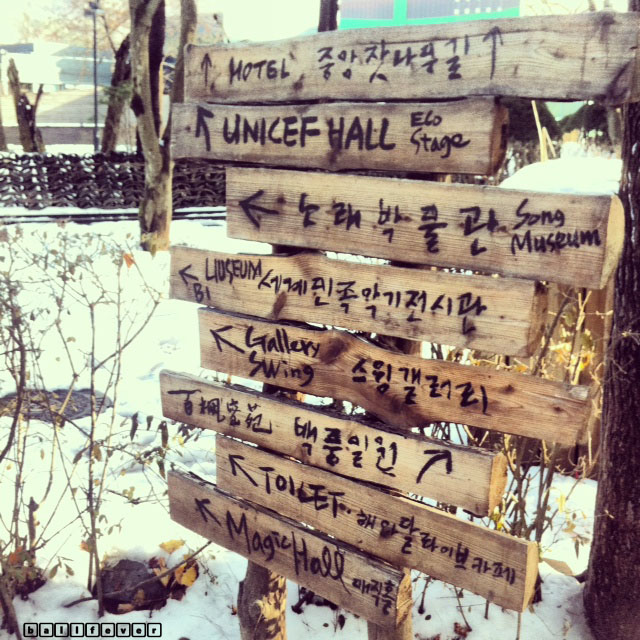 ↑ HOTEL 중앙잣나무길 ↑
↖ UNICEF HALL Eco Stage
← 노래박물관 Song Museum
↖ LIUSEUM B1 세계민족악기전시관
↖ Gallery Swing 스윙갤러리
백풍밀원 ↗
↖ TOILET. 해와달라이브카페
↖ MagicHall 매직홀
ballfever